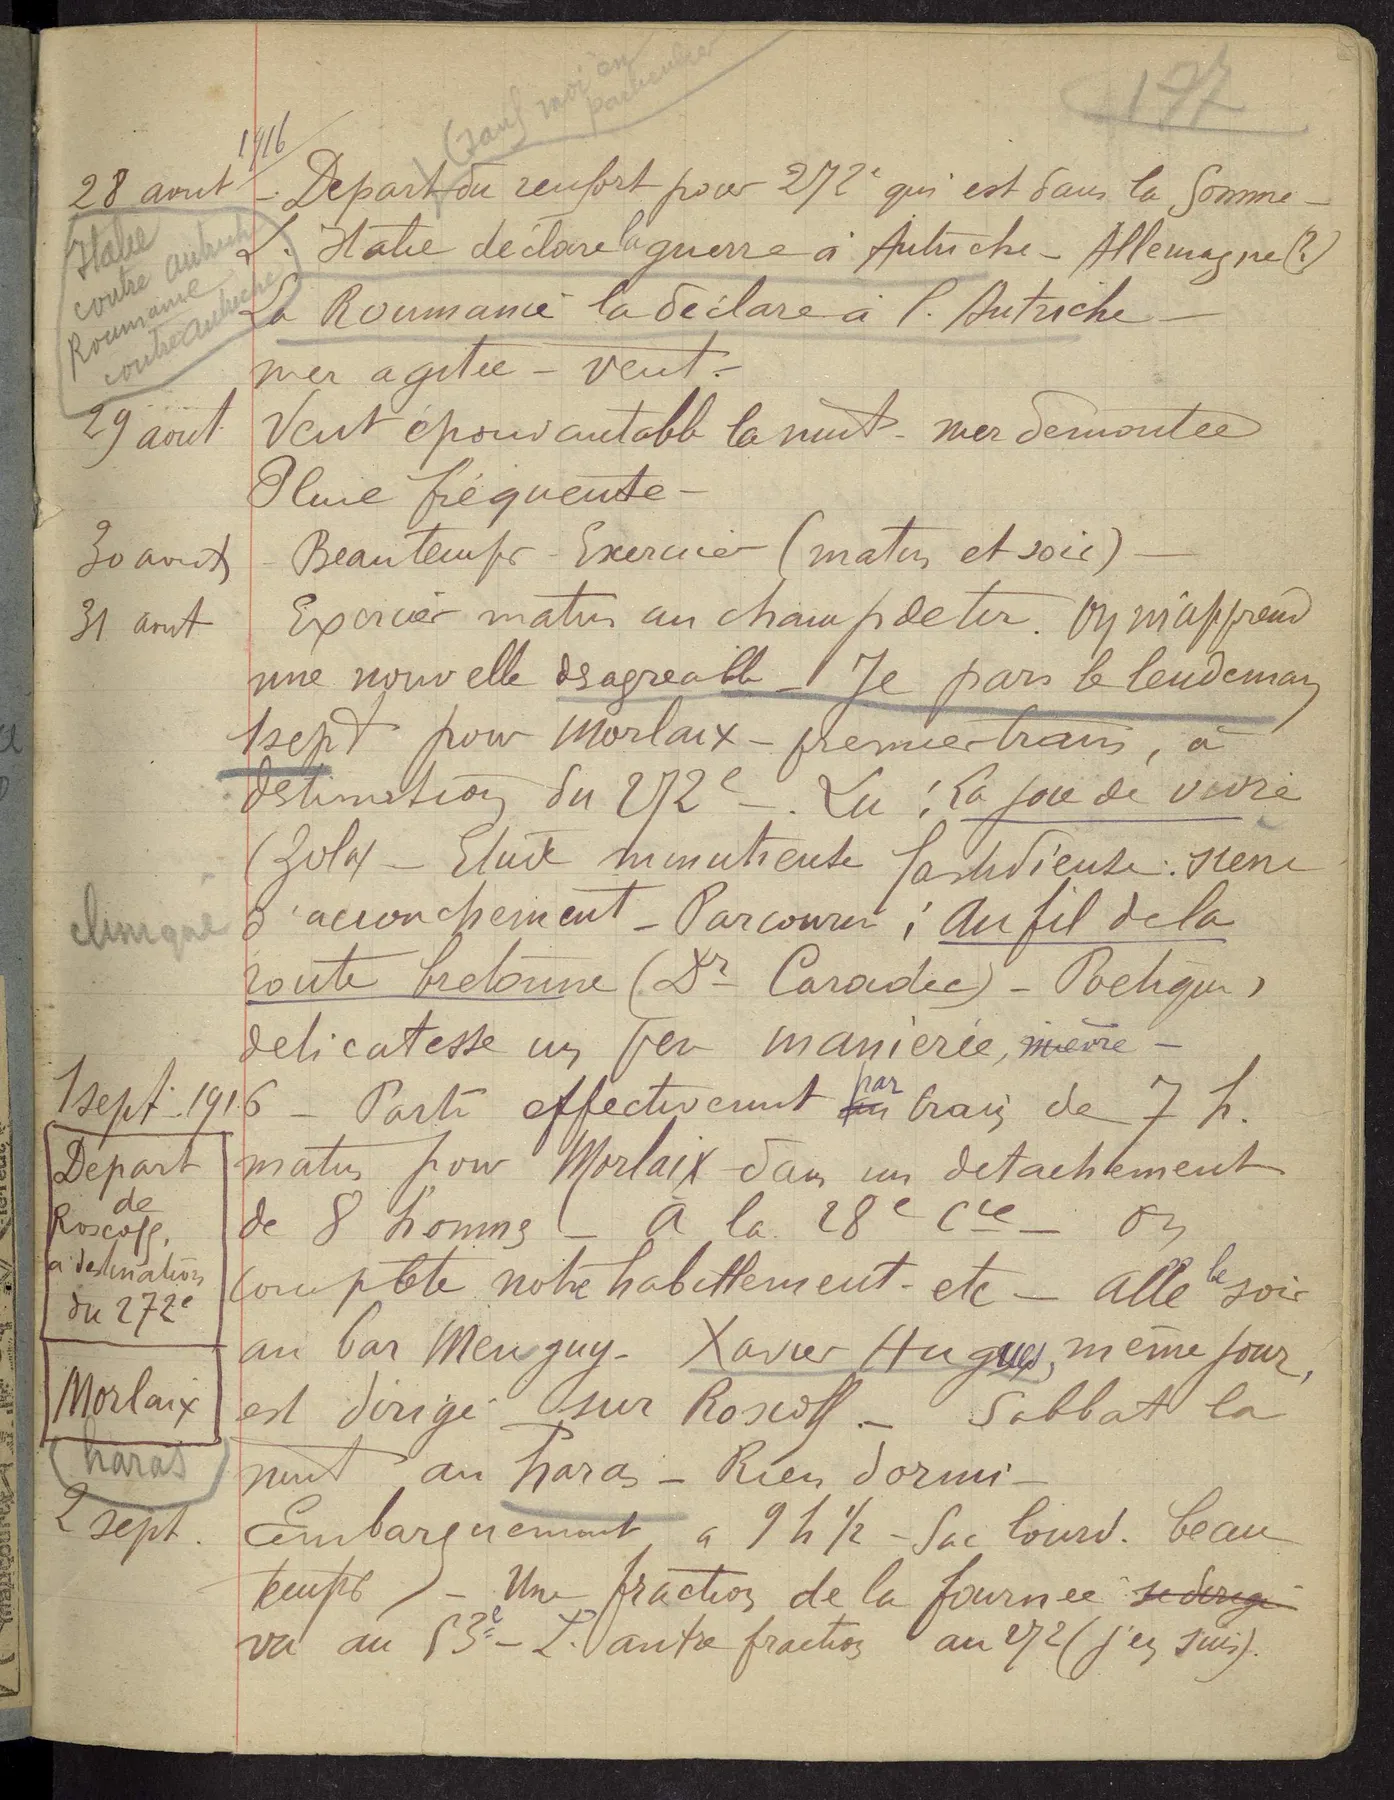 197
(sauf moi en
particulier
1916
28 aout - Depart du renfort pour 272e qui est dans la Somme -
L'Italie déclare la guerre à Autriche - Allemagne (?)
La Roumanie la déclare à l'Autriche -
Italie
contre autriche
Roumanie
contre autriche
mer agitée - vent -
29 aout Vent épouvantable la nuit - mer démontée
Pluie fréquente -
30 aout - Beau temps - Exercice (matin et soir) -
31 aout Exercice matin au champ de tir. On m'apprend
une nouvelle désagreable - Je pars le lendemain
1 sept pour Morlaix - premier train, à
destination du 272e -. Lu : La joie de vivre
(Zola) - Etude minutieuse fastidieuse : scène
clinique d'accouchement - Parcouru : Au fil de la
route bretonne (Dr Caradec) - Poétique,
delicatesse un peu maniérée, mièvre -
1 sept. 1916 - Parti effectivement au par train de 7 h.
Depart
de
Roscoff,
a destination
du 272e
matin pour Morlaix dans un detachement
de 8 hommes - à la 28e Cie - On
complète notre habillement - etc - Allé le soir
au bar Menguy - Xavier Hugues, même jour,
Morlaix
est dirigé sur Roscoff - Sabbat la
(haras) nuit au haras - Rien dormi -
2 sept. Embarquement a 9 h 1/2 - Sac lourd. beau
temps - Une fraction de la fournée se dirige
va au 53e - L'autre fraction au 272 (j'en suis).